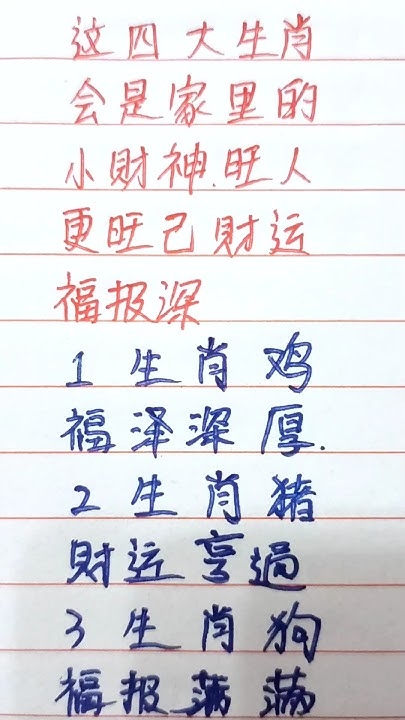 这四大生肖
会是家里的
小財神.旺人
更旺己財运
福报深
1生肖鸡
福泽深厚.
2生肖猪
財运亨通
3生肖狗
福报满满